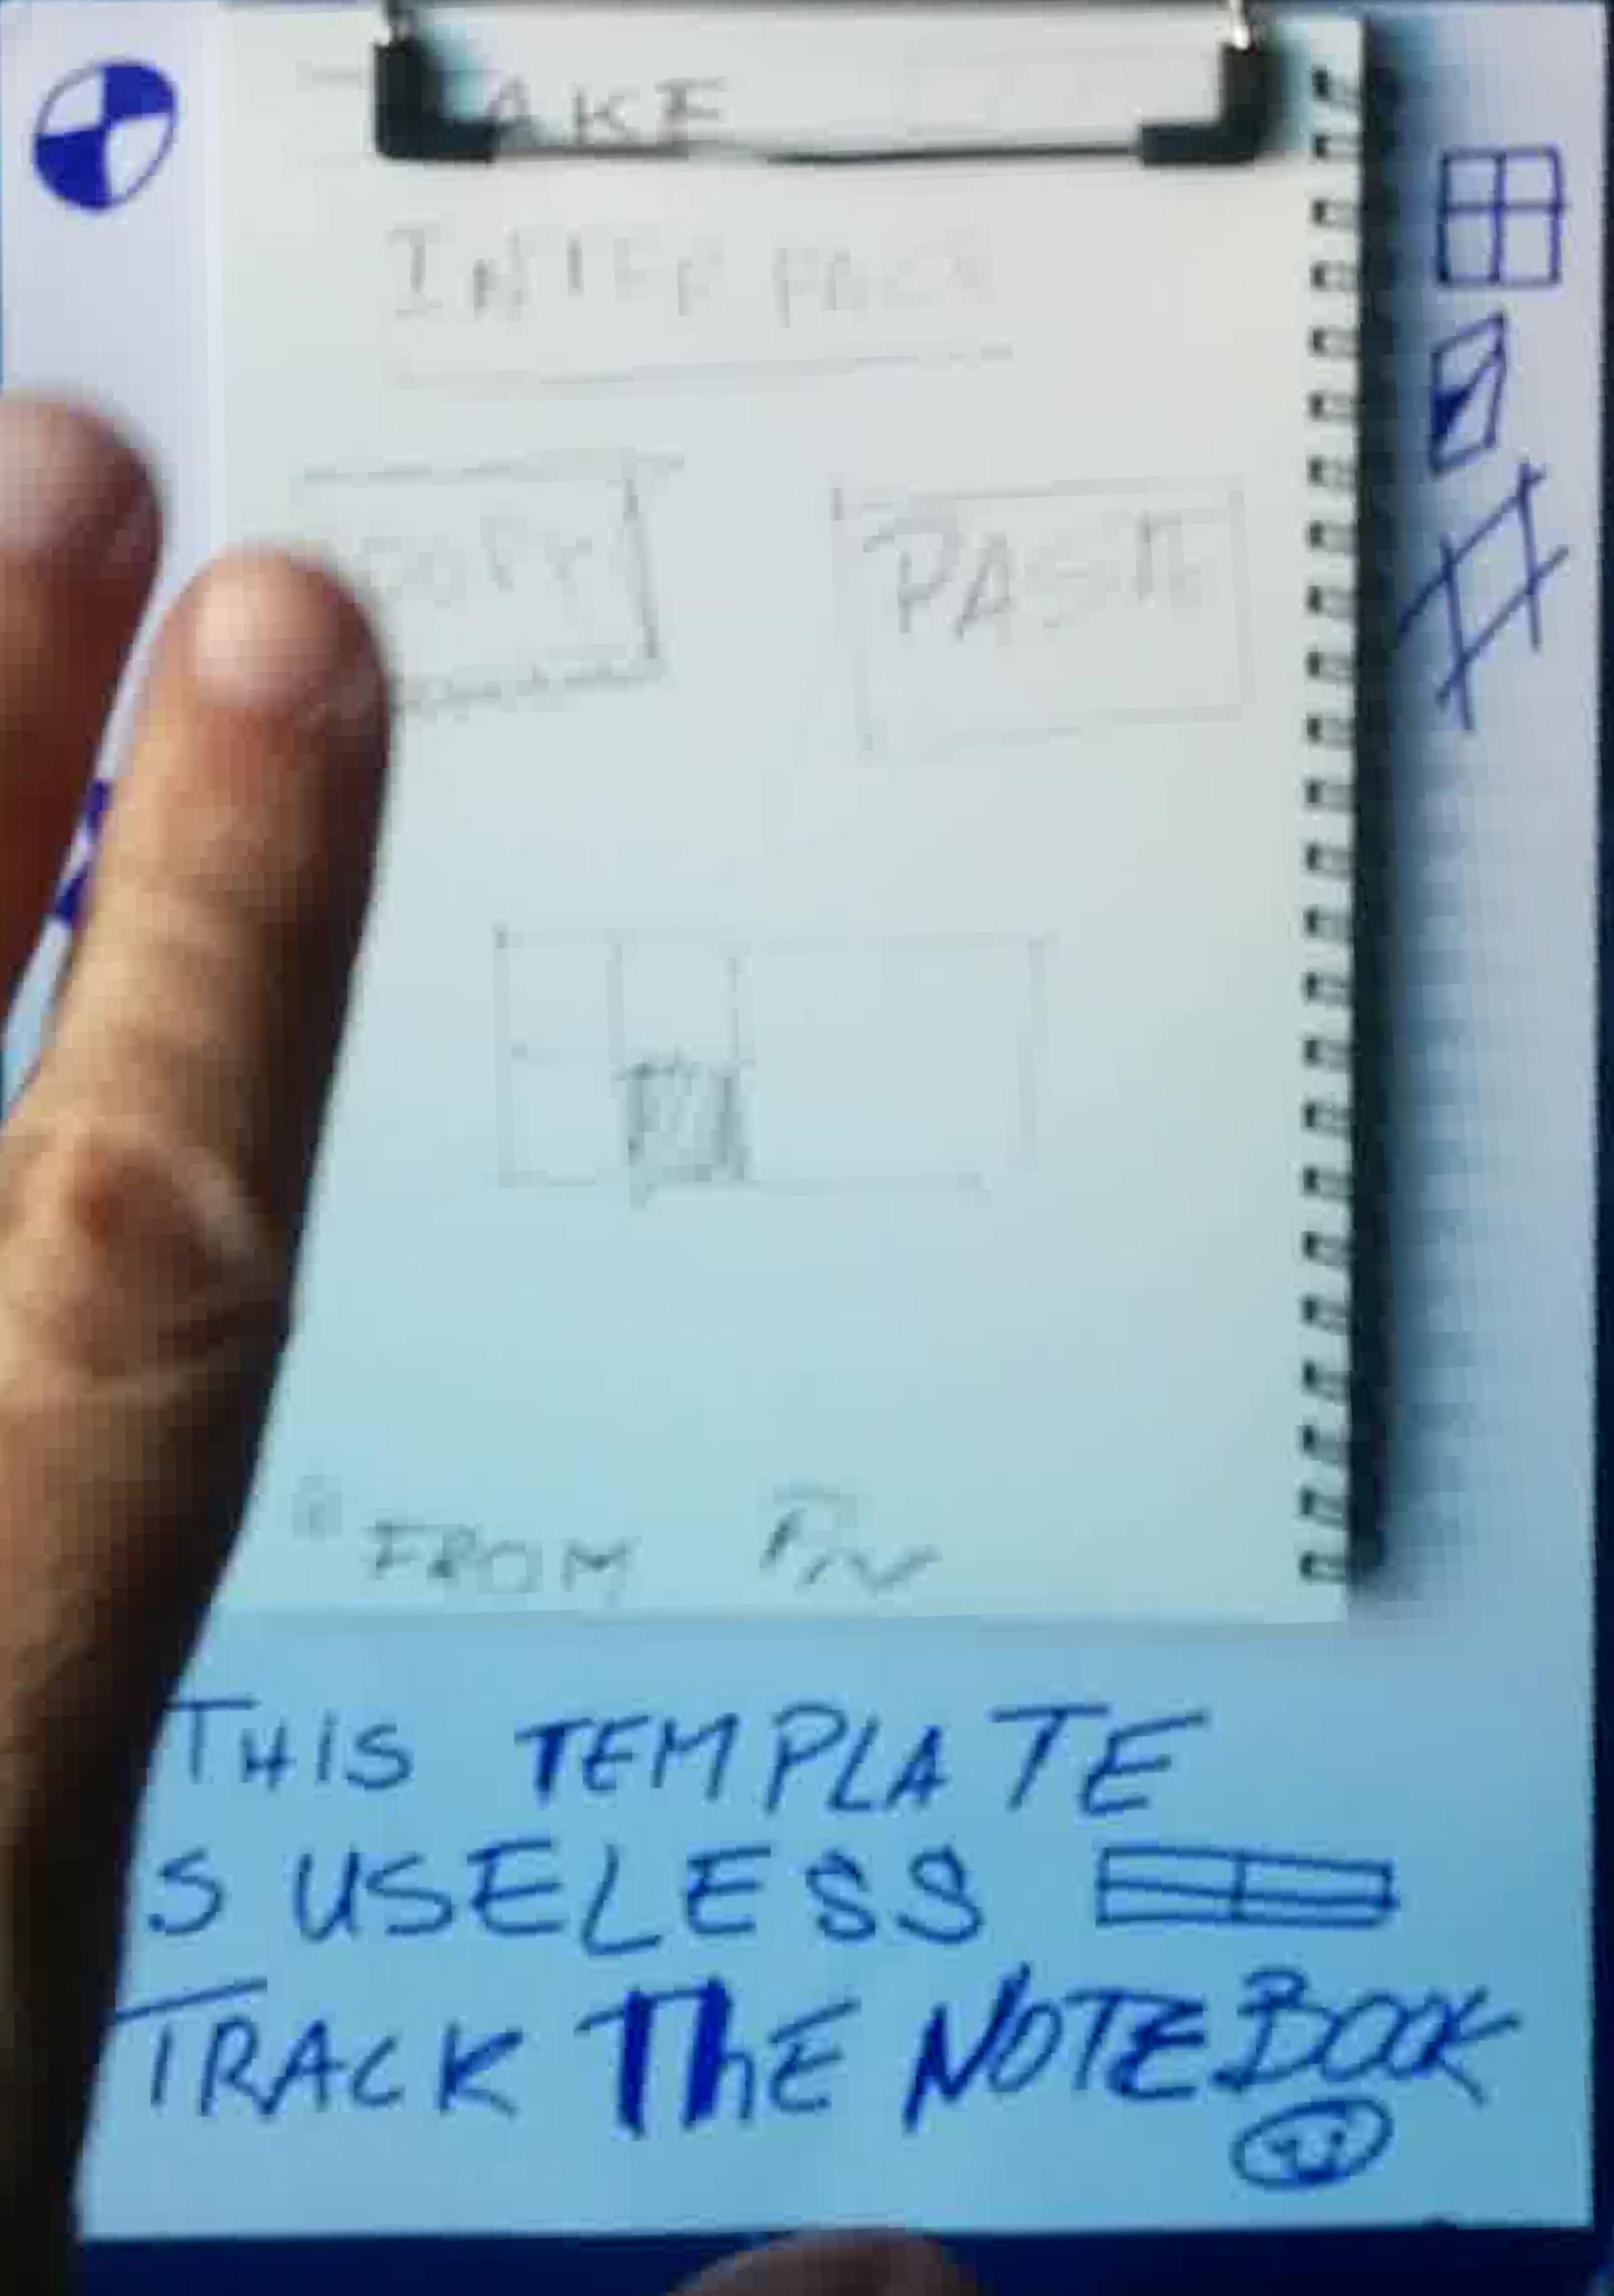 AKE
INTERFACE
COPY PASTE
FROM
THIS TEMPLATE
S USELESS
TRACK ThE NOTEBOOK